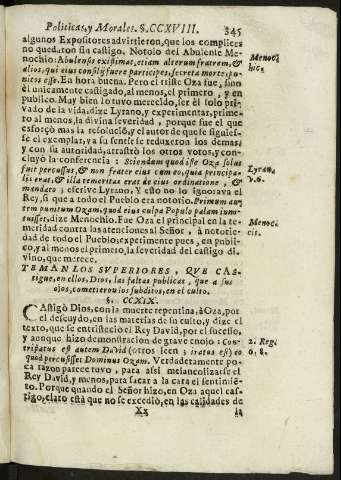 Politicas, y Morales. §. CCXVIII. 345
algunos Expositores advirtieron, que los complices
no quedaron sin castigo. Notolo del Abulense Me-
nochio: Abulensis existimat, etiam alterum fratrem, &
alios, qui eius consilij fuere participes, secreta morte, pu-
nitos esse. En hora buena. Pero el triste Oza fue, sino
el unicamente castigado, al menos, el primero, y en
publico. Muy bien lo tuvo merecido, ser èl solo pri-
vado de la vida, dize Lyrano, y experimentar, prime-
ro al menos, la divina severidad, porque fue el que
esforçò mas la resoluciõ, y el autor de que se siguies-
se el exemplar, y a su sentir se reduxeron los demas,
y con su autoridad, arrastrò los otros votos, y con-
cluyò la conferencia: Sciendum quod iste Oza solus
fuit percussus, & non frater eius cum eo, quia principa-
lis erat, & illa temeritas erat de eius ordinatione, &
mandato; escrive Lyrano. Y esto no lo ignorava el
Rey, si que a todo el Pueblo era notorio. Primum au-
tem punitum Ozam, quod eius culpa Populo palam inno-
tuisset, dize Menochio. Fue Oza el principal en la te-
meridad contra las atenciones al Señor, à notorie-
dad de todo el Pueblo; experimente pues, en publi-
co, y al menos el primero, la severidad del castigo di-
vino, que merece.
Menoc-
hic.
Lyran.
v. 6.
Menoc.
cit.
TEMAN LOS SUPERIORES, QUE CAS-
tigue, en ellos, Dios, las faltas publicas, que a sus
ojos, cometieron los subditos, en el culto.
§. CCXIX.
CAstigò Dios, con la muerte repentina, à Oza, por
el descuydo, en las materias de su culto, y dize el
texto, que se entristeciò el Rey David, por el sucesso,
y aunque hizo demonstracion de grave enojo: Con-
tristatus est autem David (otros leen; iratus est) eo
quod percussisset Dominus Ozam. Verdaderamente po-
ca razon parece tuvo, para assi melancolizarse el
Rey David, y menos, para sacar a la cara el sentimiẽ-
to. Porque quando el Señor hizo, en Oza aquel cas-
tigo, claro està que no se excediò, en las calidades de
2. Reg.
6. 8.
Xx la